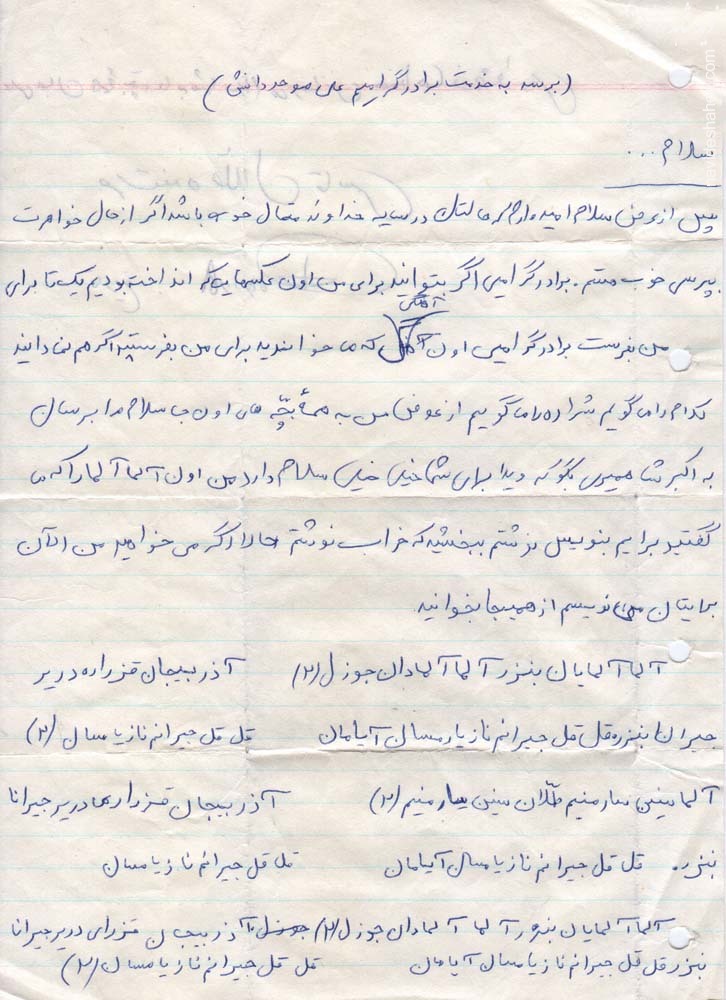 (برسد به خدمت برادر گرامیم علی موحد دانش)
سلام...
پس از عرض سلام امیدوارم که حالتان در سایه خداوند متعال خوب باشد اگر از حال خواهرت
بپرسی خوب هستم. برادر گرامی اگر بتوانید برای من اون عکسهایی که انداخته بودیم یک تا برای
من بفرست برادر گرامی اون آهنگی که ما خواندیم برای من بفرستید اگر هم نمادانید
کدام را می گویم شراده را می گویم از عوض من به همهٔ بچّه های اون جا سلام مرا برسان
به اکبر شاهمیری بگو که ویدا برای شما خیلی خیلی سلام دارد من اون آلما آلما را که ما
گفتید برایم بنویس نوشتم ببخشید که خراب نوشتم حالا اگر می خواهید من الآن
برایتان می نویسم از همینجا بخوانید
آلما آلمایان بنزر آلما آلمادان جوزل (۲) آذربیجان قنزاره دریر
جیرانا بنزره قل قل جیرانم نازیارمسان آیامان قل قل جیرانم نازیا مسان (۲)
آلما سنین سار منیم طلّان سنین سار منیم (۲) آذربیجان قنزاری ما دریر جیرانا
بنزر. قل قل جیرانم نازیا مسان آیامان قل قل جیرانم نازیا مسان
آلما آلمایان بنزر آلما آلمادان جوزل (۲) آذربیجان قنزرای دریر جیرانا
بنزر قل قل جیرانم نازیا مسان آیامان قل قل جیرانم نازیا مسان (۲)